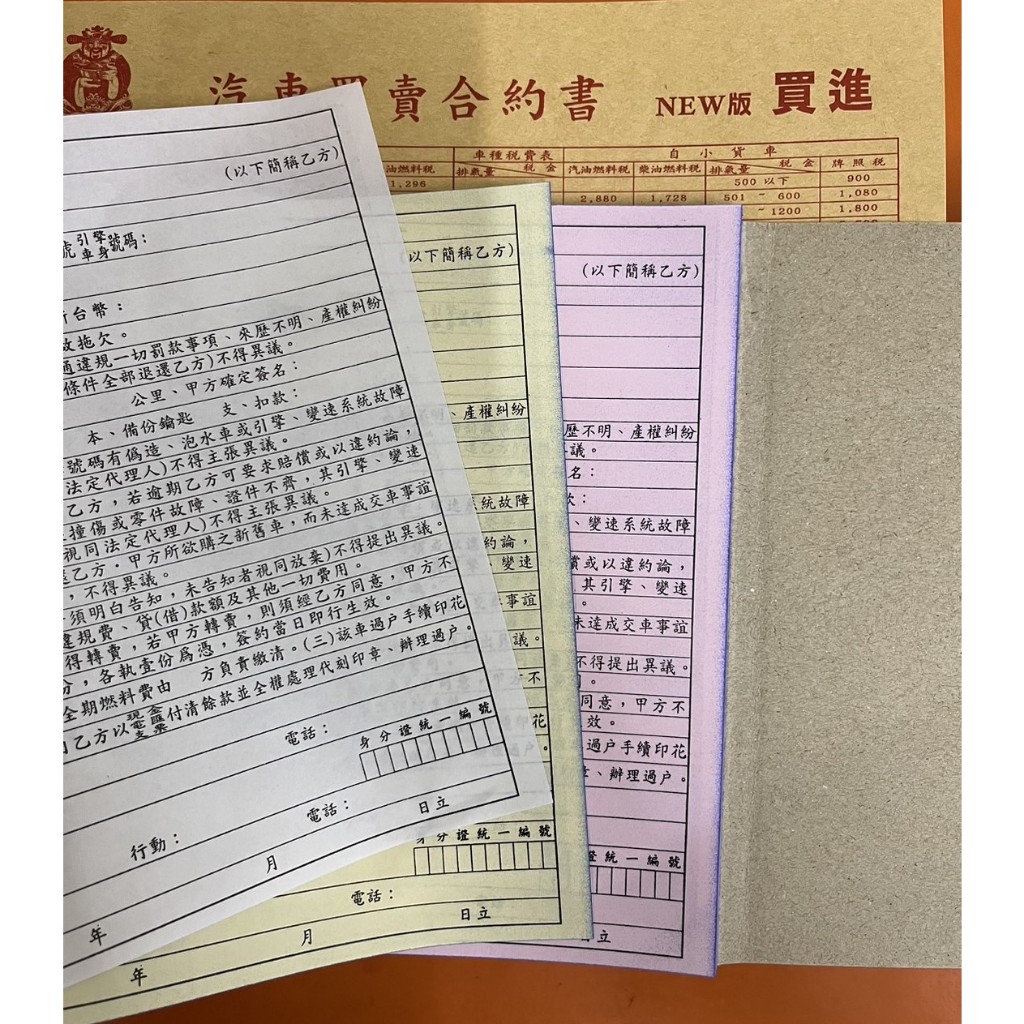 汽車買賣合約書 NEW版 買進
車種稅費表 自小貨車
油燃料稅 排氣量 稅金 汽油燃料稅 柴油燃料稅 排氣量 稅金 牌照稅
1,296 500以下 900
2,880 1,728 501－600 1,080
－1200 1,800
(以下簡稱乙方)
號引擎車身號碼：
新台幣：
故拖欠。
通違規一切罰款事項、來歷不明、產權糾紛
條件全部退還乙方)不得異議。
公里、甲方確定簽名：
本、備份鑰匙 支、扣款：
號碼有偽造、泡水車或引擎、變速系統故障
法定代理人)不得主張異議。
乙方，若逾期乙方可要求賠償或以違約論，
撞傷或零件故障、證件不齊，其引擎、變速
視同法定代理人)不得主張異議。
乙方．甲方所欲購之新舊車，而未達成交車事誼
，不得異議。
須明白告知，未告知者視同放棄)不得提出異議。
違規費、貸(借)款額及其他一切費用。
得轉賣，若甲方轉賣，則須經乙方同意，甲方不
份，各執壹份為憑，簽約當日即行生效。
全期燃料費由 方負責繳清。(三)該車過戶手續印花
乙方以現金電匯支票付清餘款並全權處理代刻印章、辦理過戶。
電話： 身分證統一編號
行動： 電話：
年 月 日立
(以下簡稱乙方)
、產權糾紛
系統故障
約論，
變速
事誼
議。
甲方不
印花
過戶。
身分證統一編號
電話：
年 月 日立
(以下簡稱乙方)
歷不明、產權糾紛
議。
名：
款：
、變速系統故障
償或以違約論，
其引擎、變速
。
未達成交車事誼
不得提出異議。
同意，甲方不
效。
過戶手續印花
章、辦理過戶。
證統一編號
日立